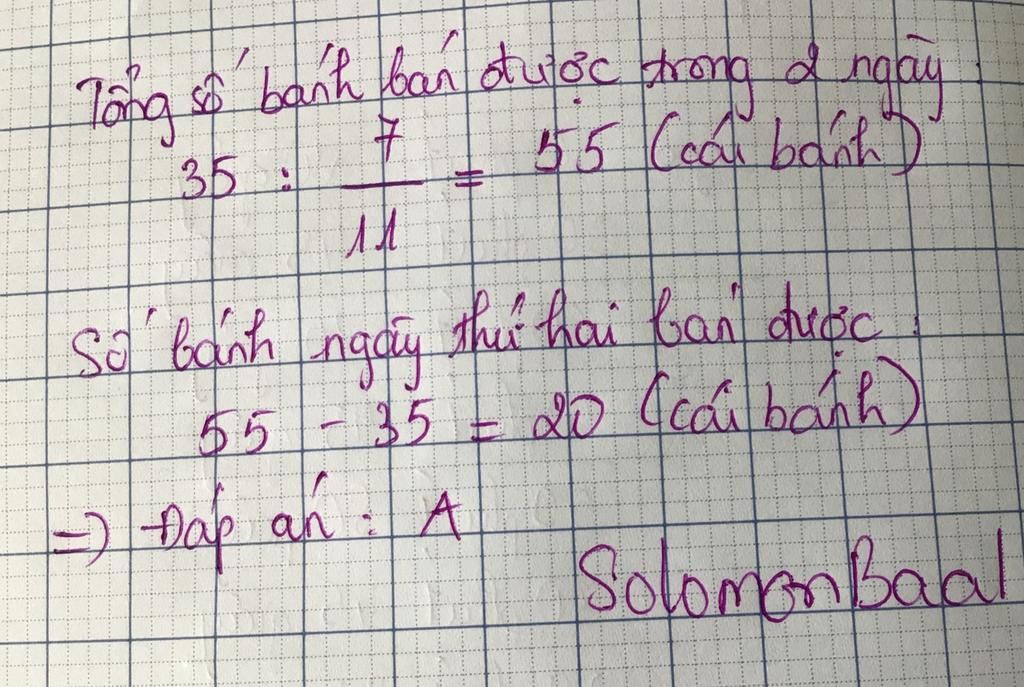 Tổng số bánh bán được trong 2 ngày:
35 : 7/11 = 55 (cái bánh)
Số bánh ngày thứ hai bán được:
55 - 35 = 20 (cái bánh)
=> Đáp án: A
SolomonBaal